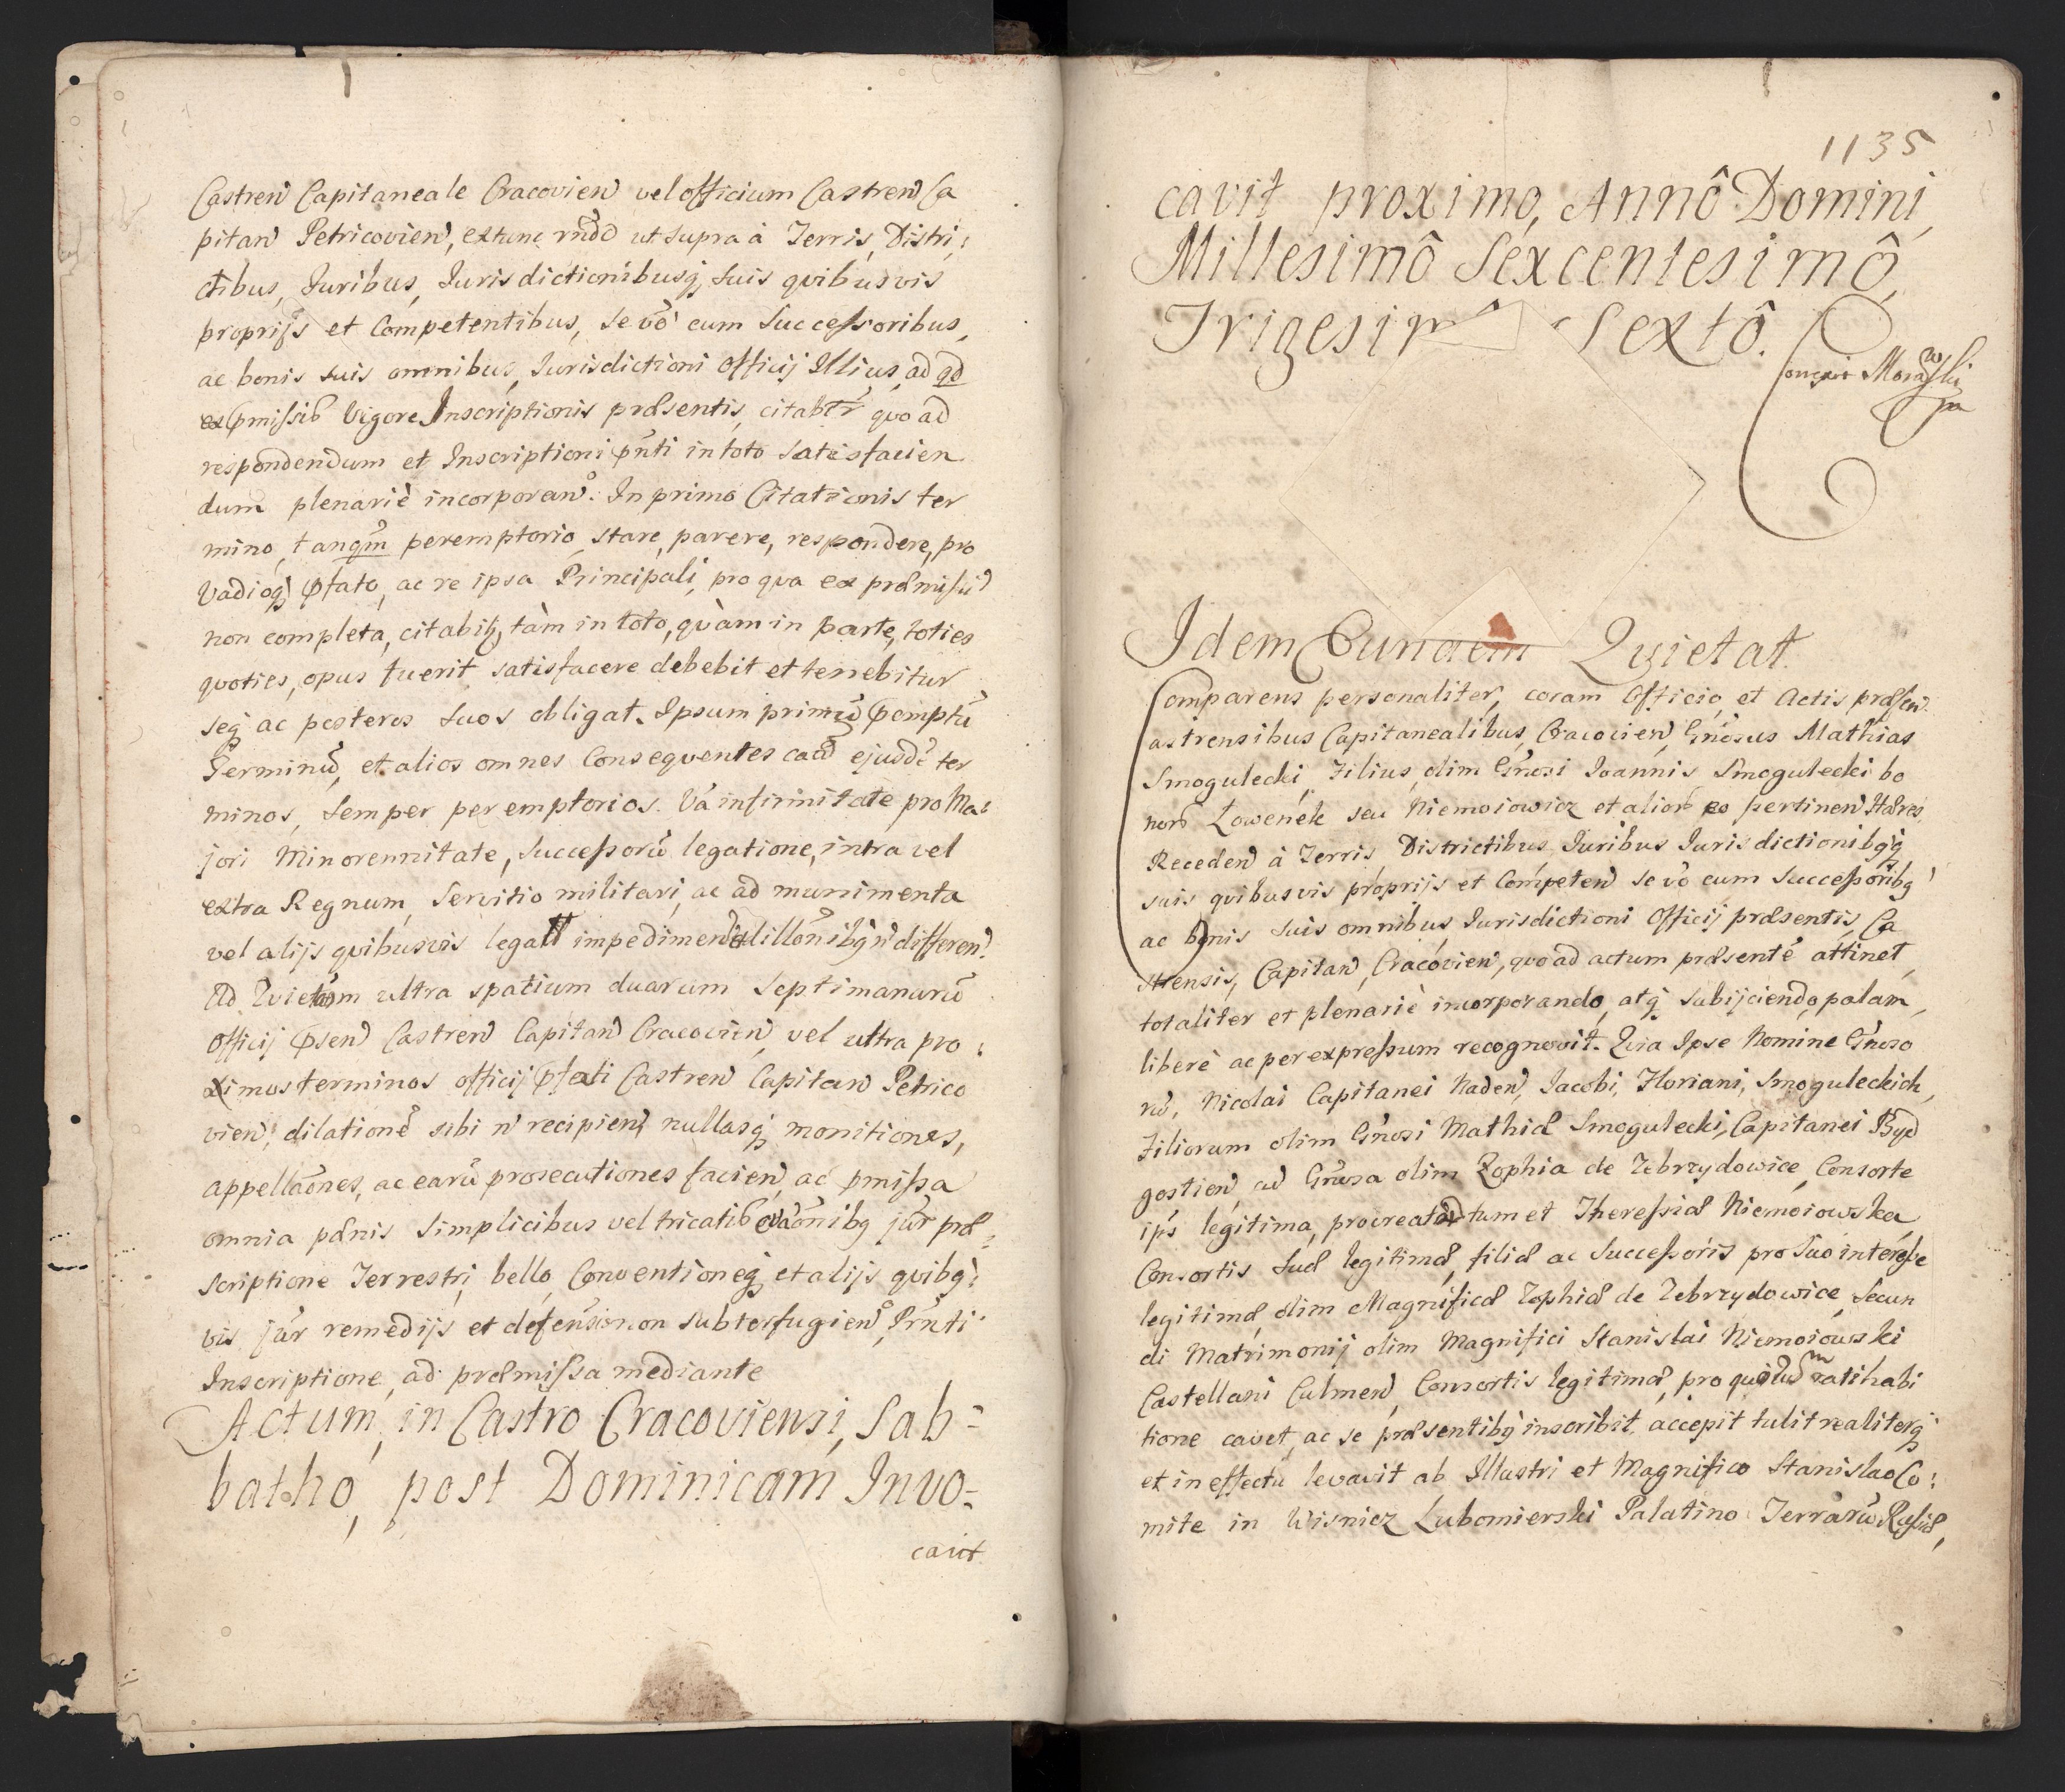 Castren Capitaneale Cracovien vel officium Castren Ca
pitan Petricovien, extunc rñdo ut supra à Terris, Distri:
ctibus, Iuribus, Iurisdictionibusq, suis qvibusvis
proprijs et Competentibus, se vō cum Successoribus,
ac bonis suis omnibus, Iurisdictioni Officij Illius, ad qd
ex pmissis Vigore Inscriptionis præsentis, citabtr quo ad
respondendum et Inscriptioni pñti in toto satisfacien
dum plenariè incorporan. In primo Citationis ter
mino, tanqm̃ peremptorio, stare, parere, respondere, pro
Vadioq ptato, ac re ipsa Principali, pro qva ex præmissis
non completa, citabit, tàm in toto, qvàm in parte, toties
qvoties, opus fuerit satisfacere debebit et tenebitur
seq ac posteros suos obligat. Ipsum primū pemptū
Terminū, et alios omnes Conseqventes caā ejusdē ter
minos, semper peremptorios. Vā infirmitate pro Ma:
jori Minorennitate, Successorū legatione, intra vel
extra Regnum, Servitio militari, ac ad munimenta
vel alijs qvibusvis legall impedimen dillōnibq n differen.
Ad Qvietōm ultra spatium duarum Septimanarū
Officij psen Castren Capitan Cracovien, vel ultra pro:
ximos terminos officij pfati Castren Capitan Petrico
vien, dilationē sibi n recipien, nullasq monitiones,
appellāones, ac earū prosecutiones facien, ac pmissa
omnia pænis simplicibus vel tricatis evāonibq jūr præ=
scriptione Terrestri, bello, Conventioneq, et alijs qvibq:
vis jūr remedijs et defensionon subterfugien, Prñti
Inscriptione, ad præmissa mediante
Actum, in Castro Cracoviensi, Sab=
batho, post Dominicam Invo=
cavit
1135
cavit proximo, Annô Domini
Millesimô Sexcentesimô,
Trigesimô Sextô.
Idem Eundem Qvietat.
Comparens personaliter, coram Officio, et Actis, præsen.
astrensibus Capitanealibus, Cracovien, Gñosus Mathias
Smogulecki, Filius, olim Gñosi Ioannis Smogulecki bo
norō Lowenek seu Niemoiowicz et aliorō eo pertinen Hæres.
Receden à Terris, Districtibus, Iuribus Iurisdictionibqq
suis qvibusvis proprijs et Competen se vō cum Successoribq
ac bonis suis omnibus, Iurisdictioni Officij præsentis, Ca
strensis, Capitan, Cracovien, qvo ad actum præsentē attinet,
totaliter et plenariè incorporando, atq subijciendo, palam,
liberè ac per expressum recognovit. Qvia Ipse Nomine Gñoso
rū, Nicolai Capitanei Naden, Iacobi, Floriani, Smoguleckich,
Filiorum olim Gñosi Mathiæ Smogulecki, Capitanei Byd
gostien, cū Gñosa olim Zophia de Zebrzydowice, Consorte
ips legitima, procreat tum et Theressiæ Niemoiowska,
Consortis suæ legitimæ, filiæ ac Successoris pro suo interesse
legitimæ, olim Magnificæ Zophiæ de Zebrzydowice, Secun
di Matrimonij olim Magnifici Stanislai Niemoiowski
Castellani Culmen, Consortis legitimæ, pro qvi ratihabi
tione cavet, ac se præsentibq inscribit, accepit tulit realiterq
et in effectu levavit ab Illustri et Magnifico Stanislao Co:
mite in Wisnicz Lubomierski Palatino Terrarū Russiæ,